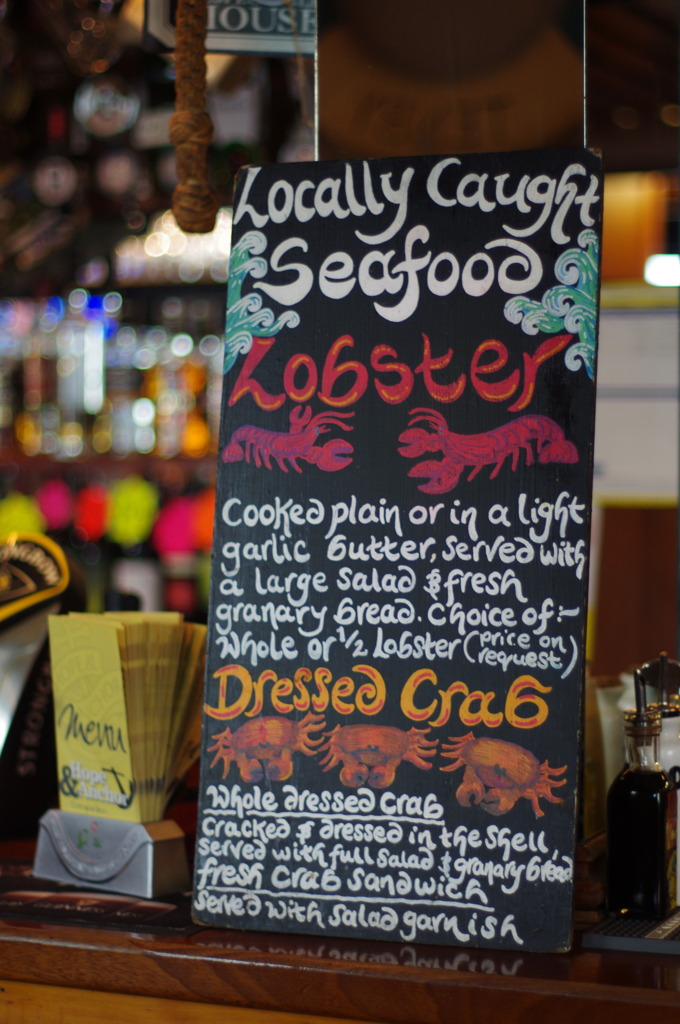 HOUSE
Locally Caught
Seafood
Lobster
Cooked plain or in a light
garlic butter, served with
a large salad & fresh
granary bread. Choice of:-
Whole or 1/2 Lobster (price on
request)
Dressed Crab
Whole dressed Crab
Cracked & dressed in the shell,
served with full salad & granary bread
fresh Crab sandwich
served with salad garnish
Menu
Hope
& Anchor
STRONG